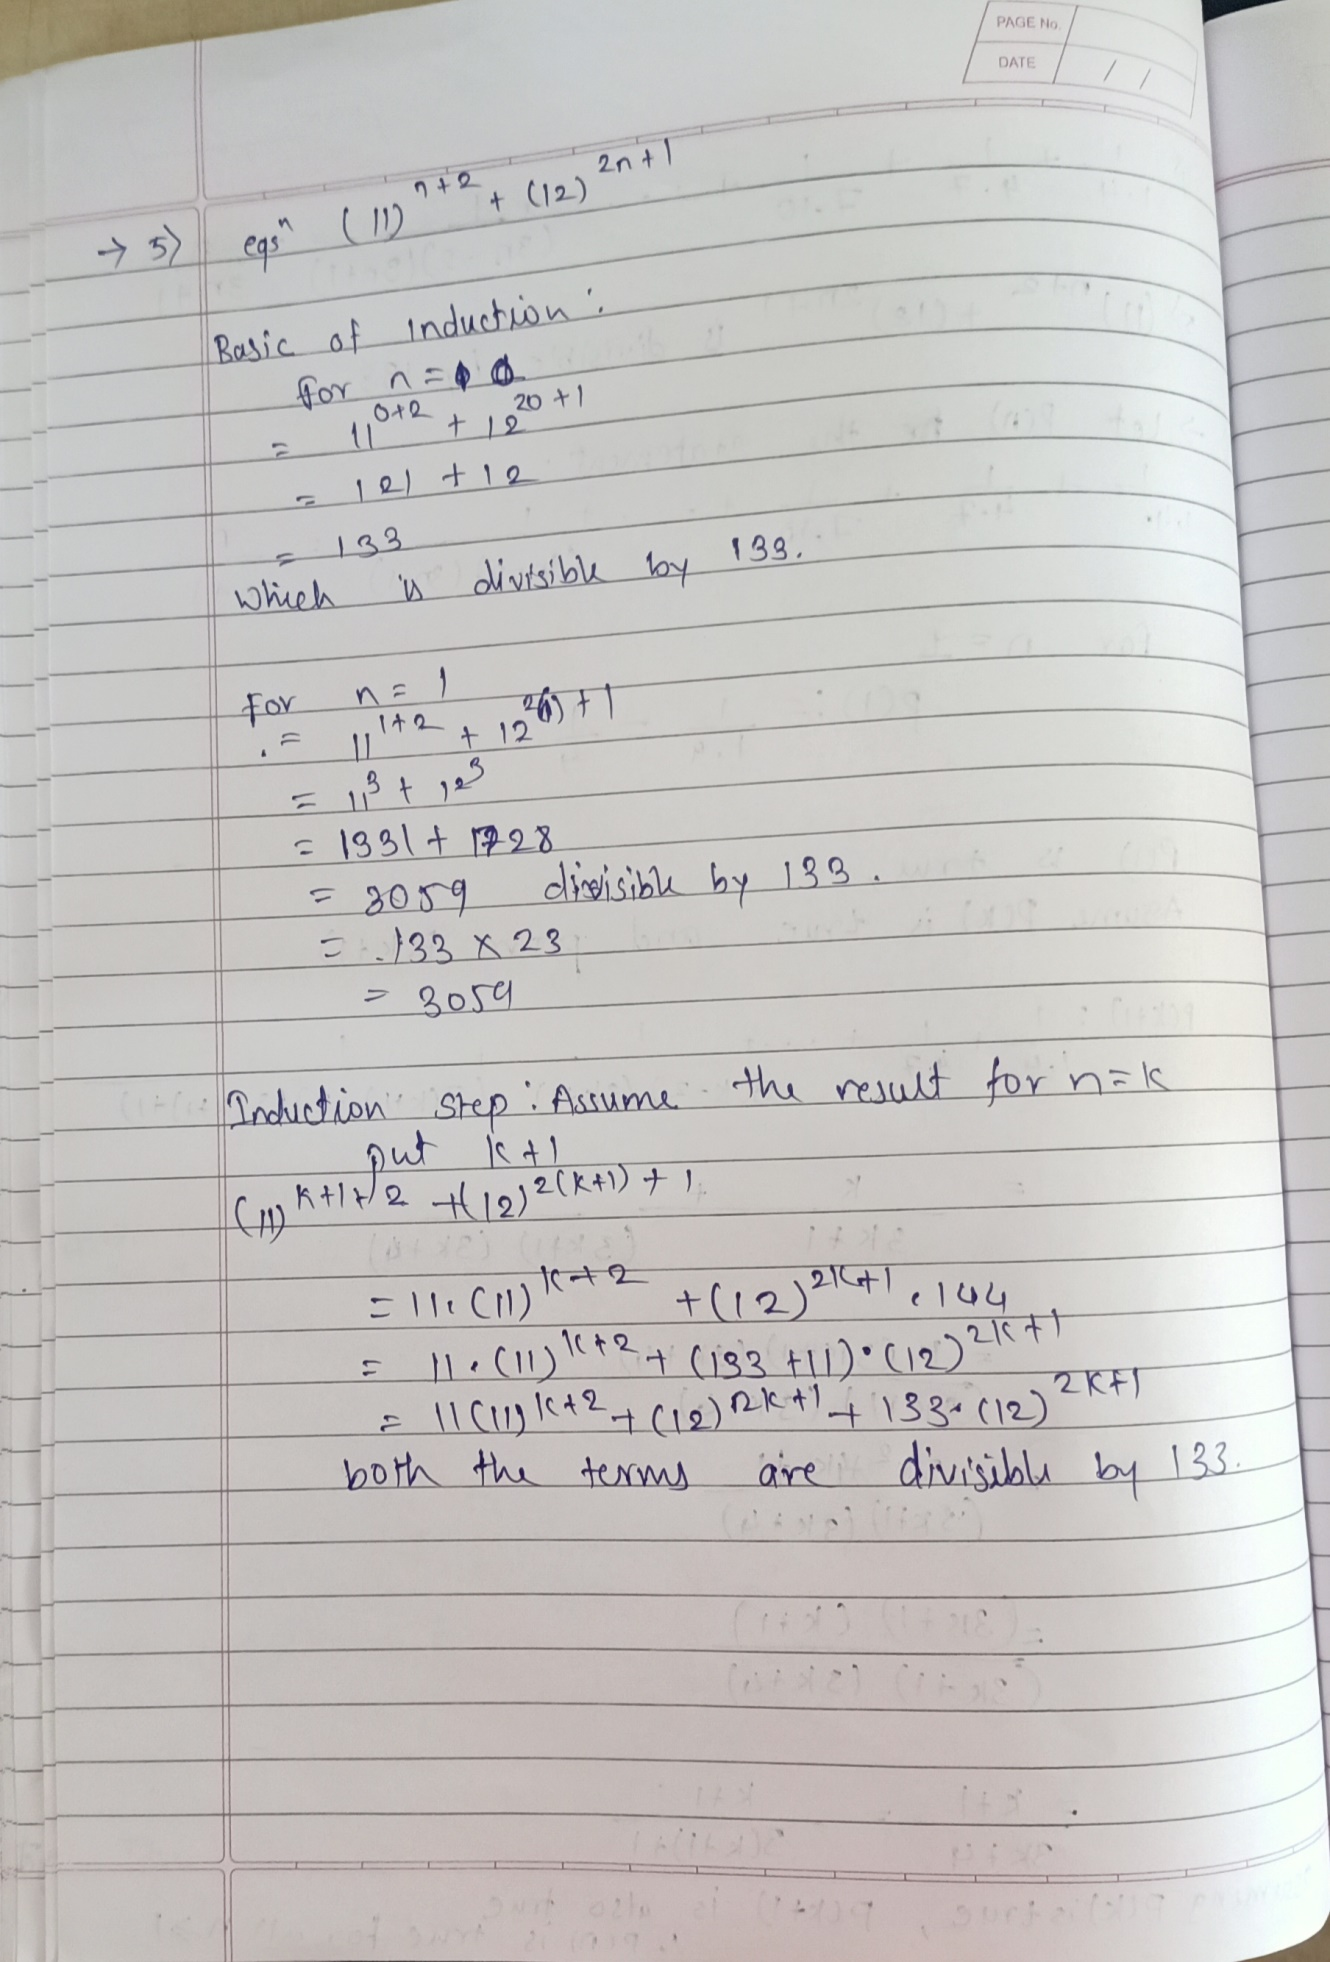 PAGE No.
DATE / /
→ 5) eqsⁿ (11)^{n+2} + (12)^{2n+1}
Basic of induction :
for n = 0
= 11^{0+2} + 12^{20+1}
= 121 + 12
= 133
which is divisible by 133.
For n = 1
= 11^{1+2} + 12^{2(1)+1}
= 11^3 + 12^3
= 1331 + 1728
= 3059 divisible by 133.
= 133 × 23
= 3059
Induction step : Assume the result for n = k
put k+1
(11)^{k+1+2} + (12)^{2(k+1)+1}
= 11·(11)^{k+2} + (12)^{2k+1} · 144
= 11·(11)^{k+2} + (133+11)·(12)^{2k+1}
= 11(11)^{k+2} + (12)^{2k+1} + 133·(12)^{2k+1}
both the terms are divisible by 133.